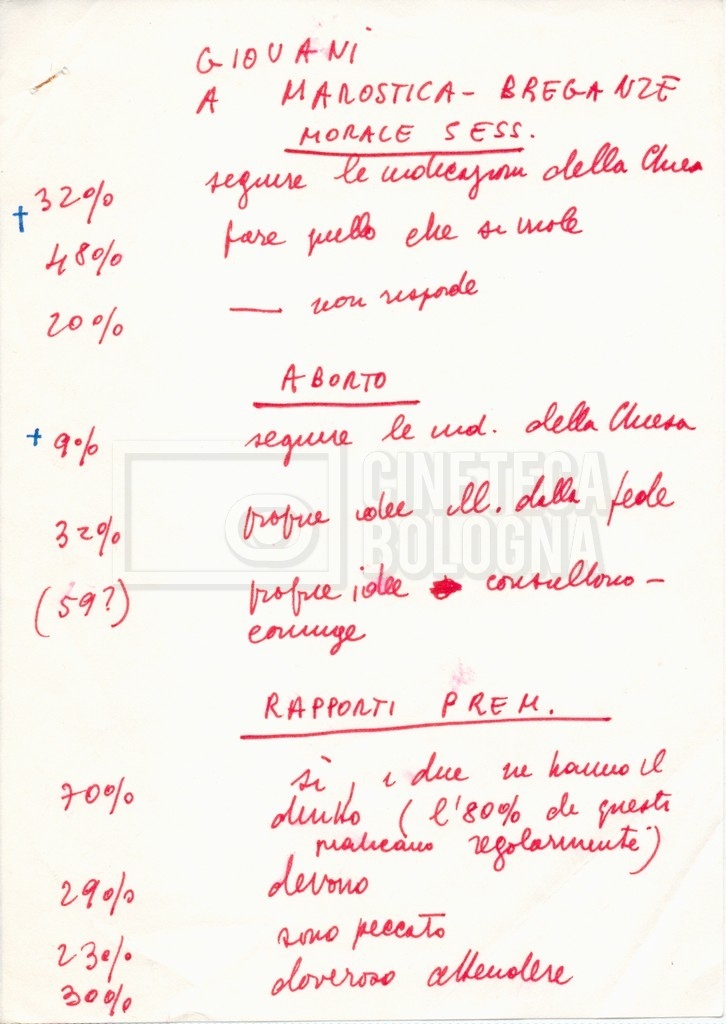 GIOVANI
A MAROSTICA - BREGANZE
MORALE SESS.
† 32% seguire le indicazioni della Chiesa
48% fare quello che si vuole
20% — non risponde
ABORTO
+ 9% seguire le ind. della Chiesa
32% proprie idee ill. dalla fede
(59?) proprie idee consultano -
coniuge
RAPPORTI PREM.
70% sì, i due ne hanno il
diritto (l'80% di questi
praticano regolarmente)
29% devono
23% sono peccato
30% doveroso attendere
CINETECA
BOLOGNA